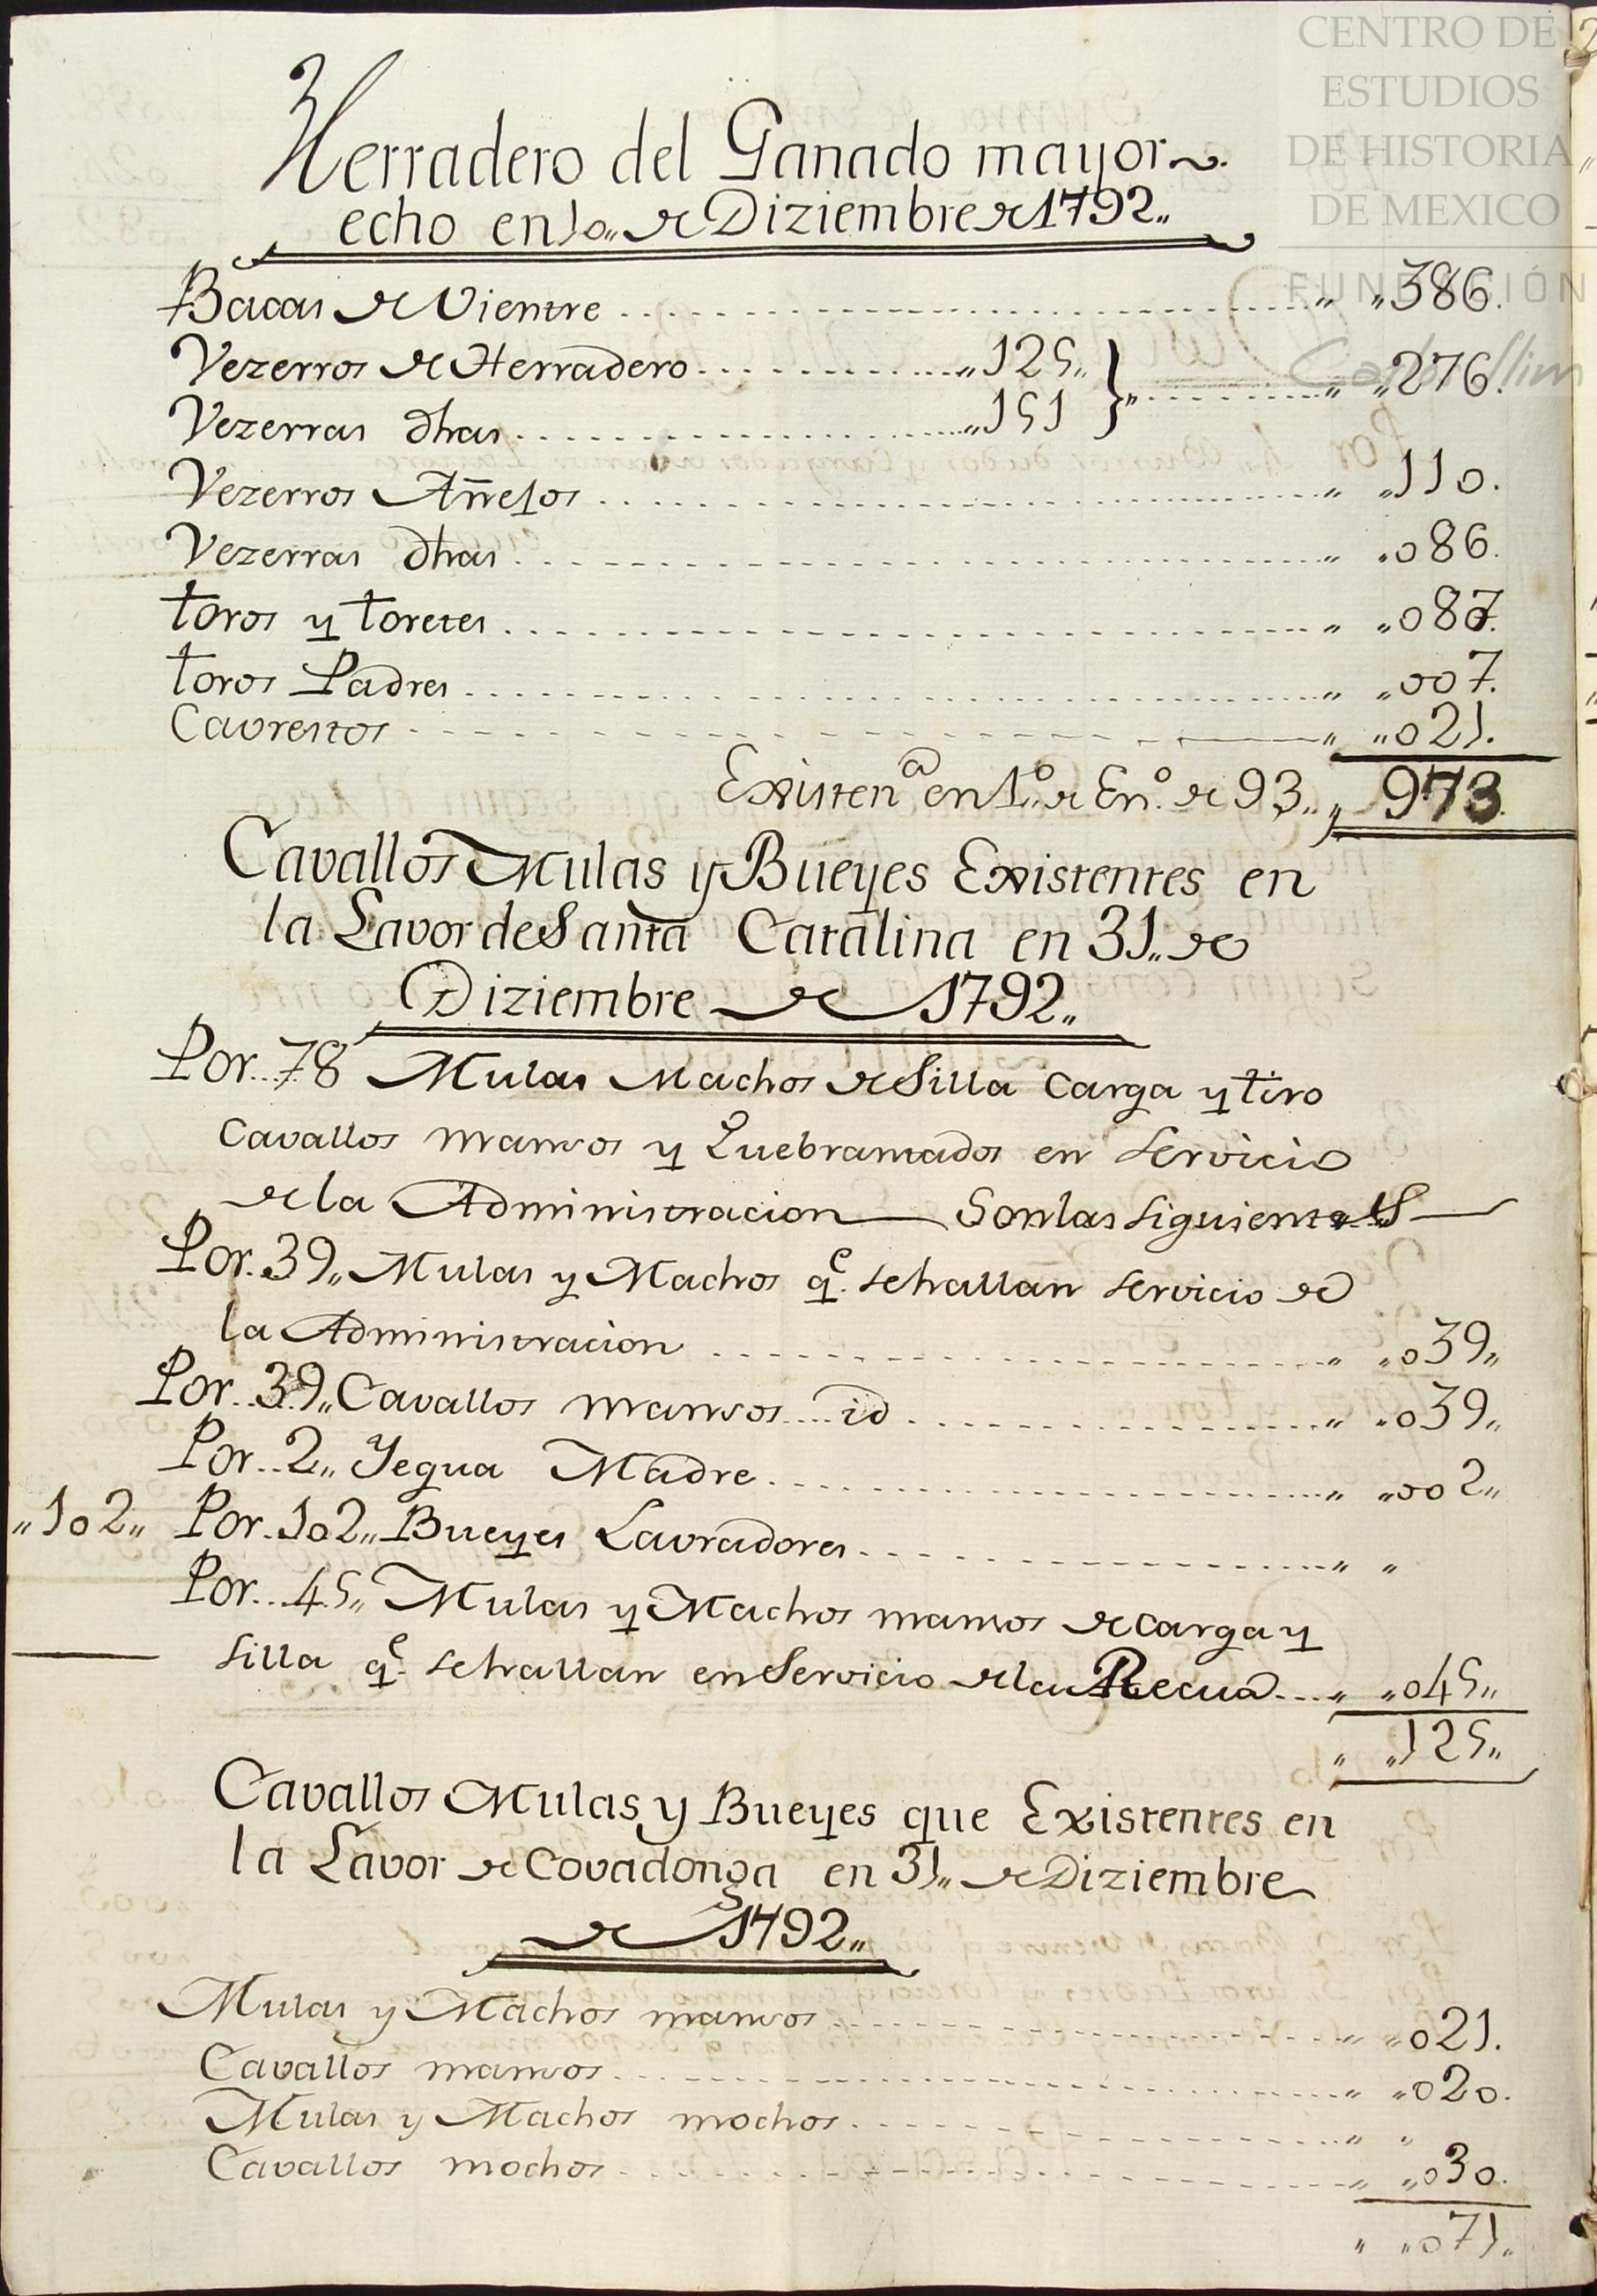 CENTRO DE
ESTUDIOS
DE HISTORIA
DE MEXICO
FUNDACIÓN
Carlos Slim
Herradero del Ganado mayor
echo en 10,, de Diziembre de 1792,,
Bacas de Vientre ,, ,,386.
Vezerros de Herradero ,,125,, } ,, ,,276.
Vezerras dhas ,,151
Vezerros Añejos ,, ,,110.
Vezerras dhas ,, ,,086.
toros y toretes ,, ,,087.
toros Padres ,, ,,007.
Cavrestos ,, ,,021.
Existenª en 1º de Enº de 93,, ,, 973.
Cavallos Mulas y Bueyes Existentes en
la Lavor de Santa Catalina en 31,, de
Diziembre de 1792,,
Por 78 Mulas Machos de Silla carga y tiro
Cavallos mansos y Quebrantados en servicio
de la Administracion Son las siguientes
Por 39,, Mulas y Machos qe se hallan servicio de
la Administracion ,, ,,039,,
Por 39,, Cavallos mansos id ,, ,,039,,
Por 2,, Yegua Madre ,, ,,002,,
,,102,, Por 102,, Bueyes Lavradores ,, ,,
Por 45,, Mulas y Machos mansos de carga y
silla qe se hallan en Servicio de la Recua ,, ,,045,,
,, ,,125,,
Cavallos Mulas y Bueyes que Existentes en
la Lavor de Covadonga en 31,, de Diziembre
de 1792,,
Mulas y Machos mansos ,, ,,021.
Cavallos mansos ,, ,,020.
Mulas y Machos mochos ,, ,,
Cavallos mochos ,, ,,030.
,, ,,071,,